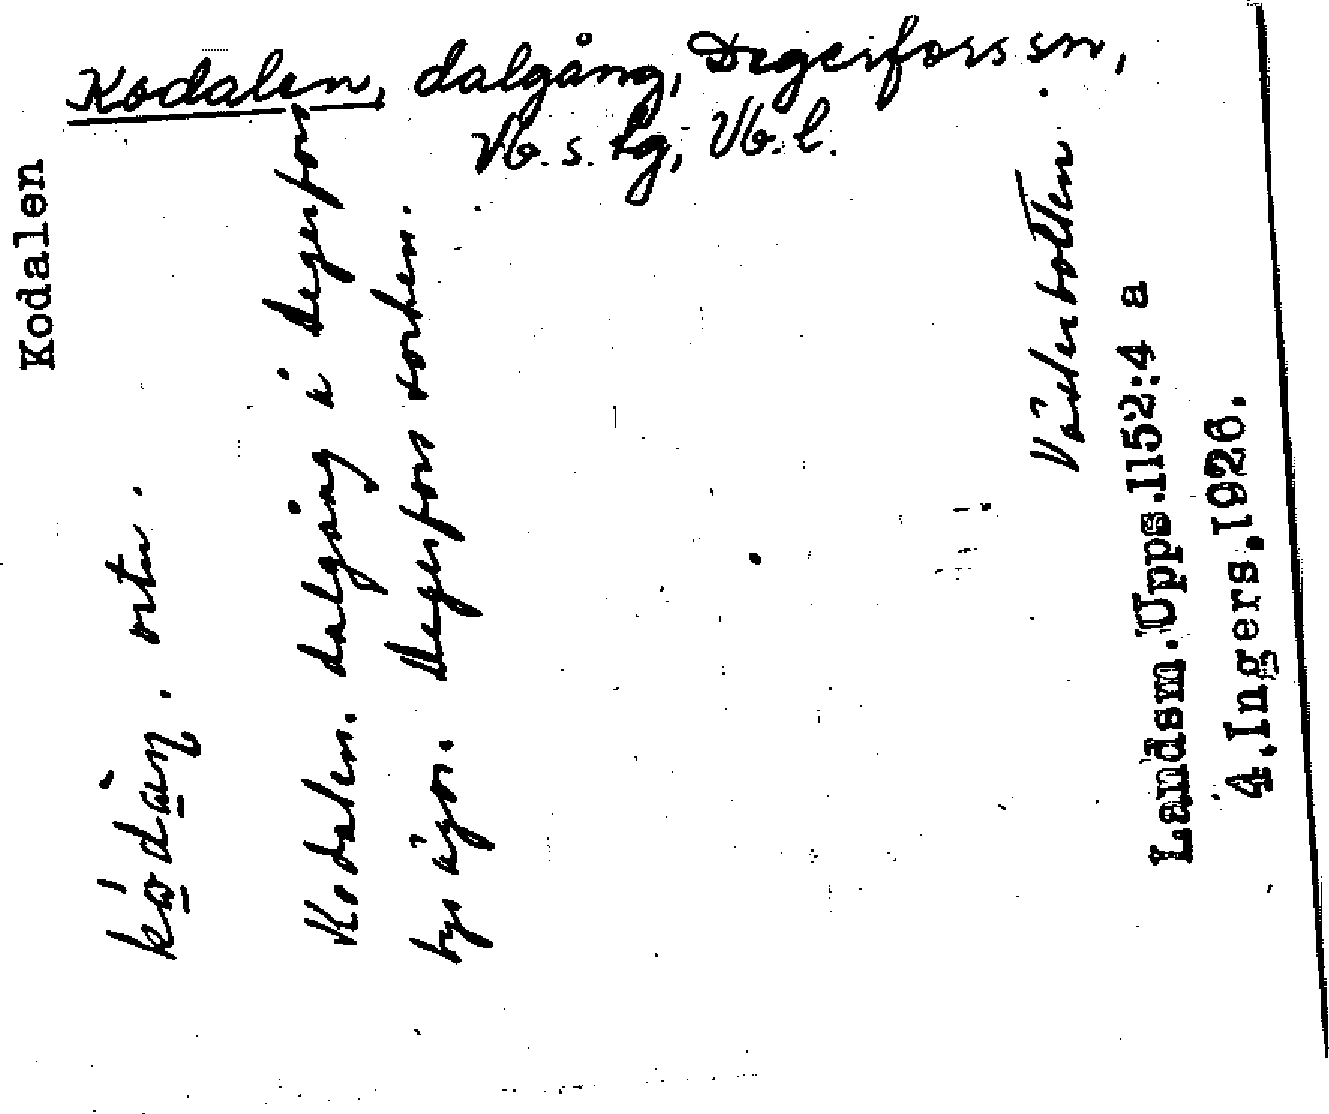 Kodalen, dalgång, Degerfors sn,
Vb. s. lg, Vb. l.
Kodalen
ortn.
Kodalen. dalgång i Degerfors
bys ägor. Degerfors socken.
Västerbotten
Landsm.Upps.1152:4 a
4.Ingers.1926.